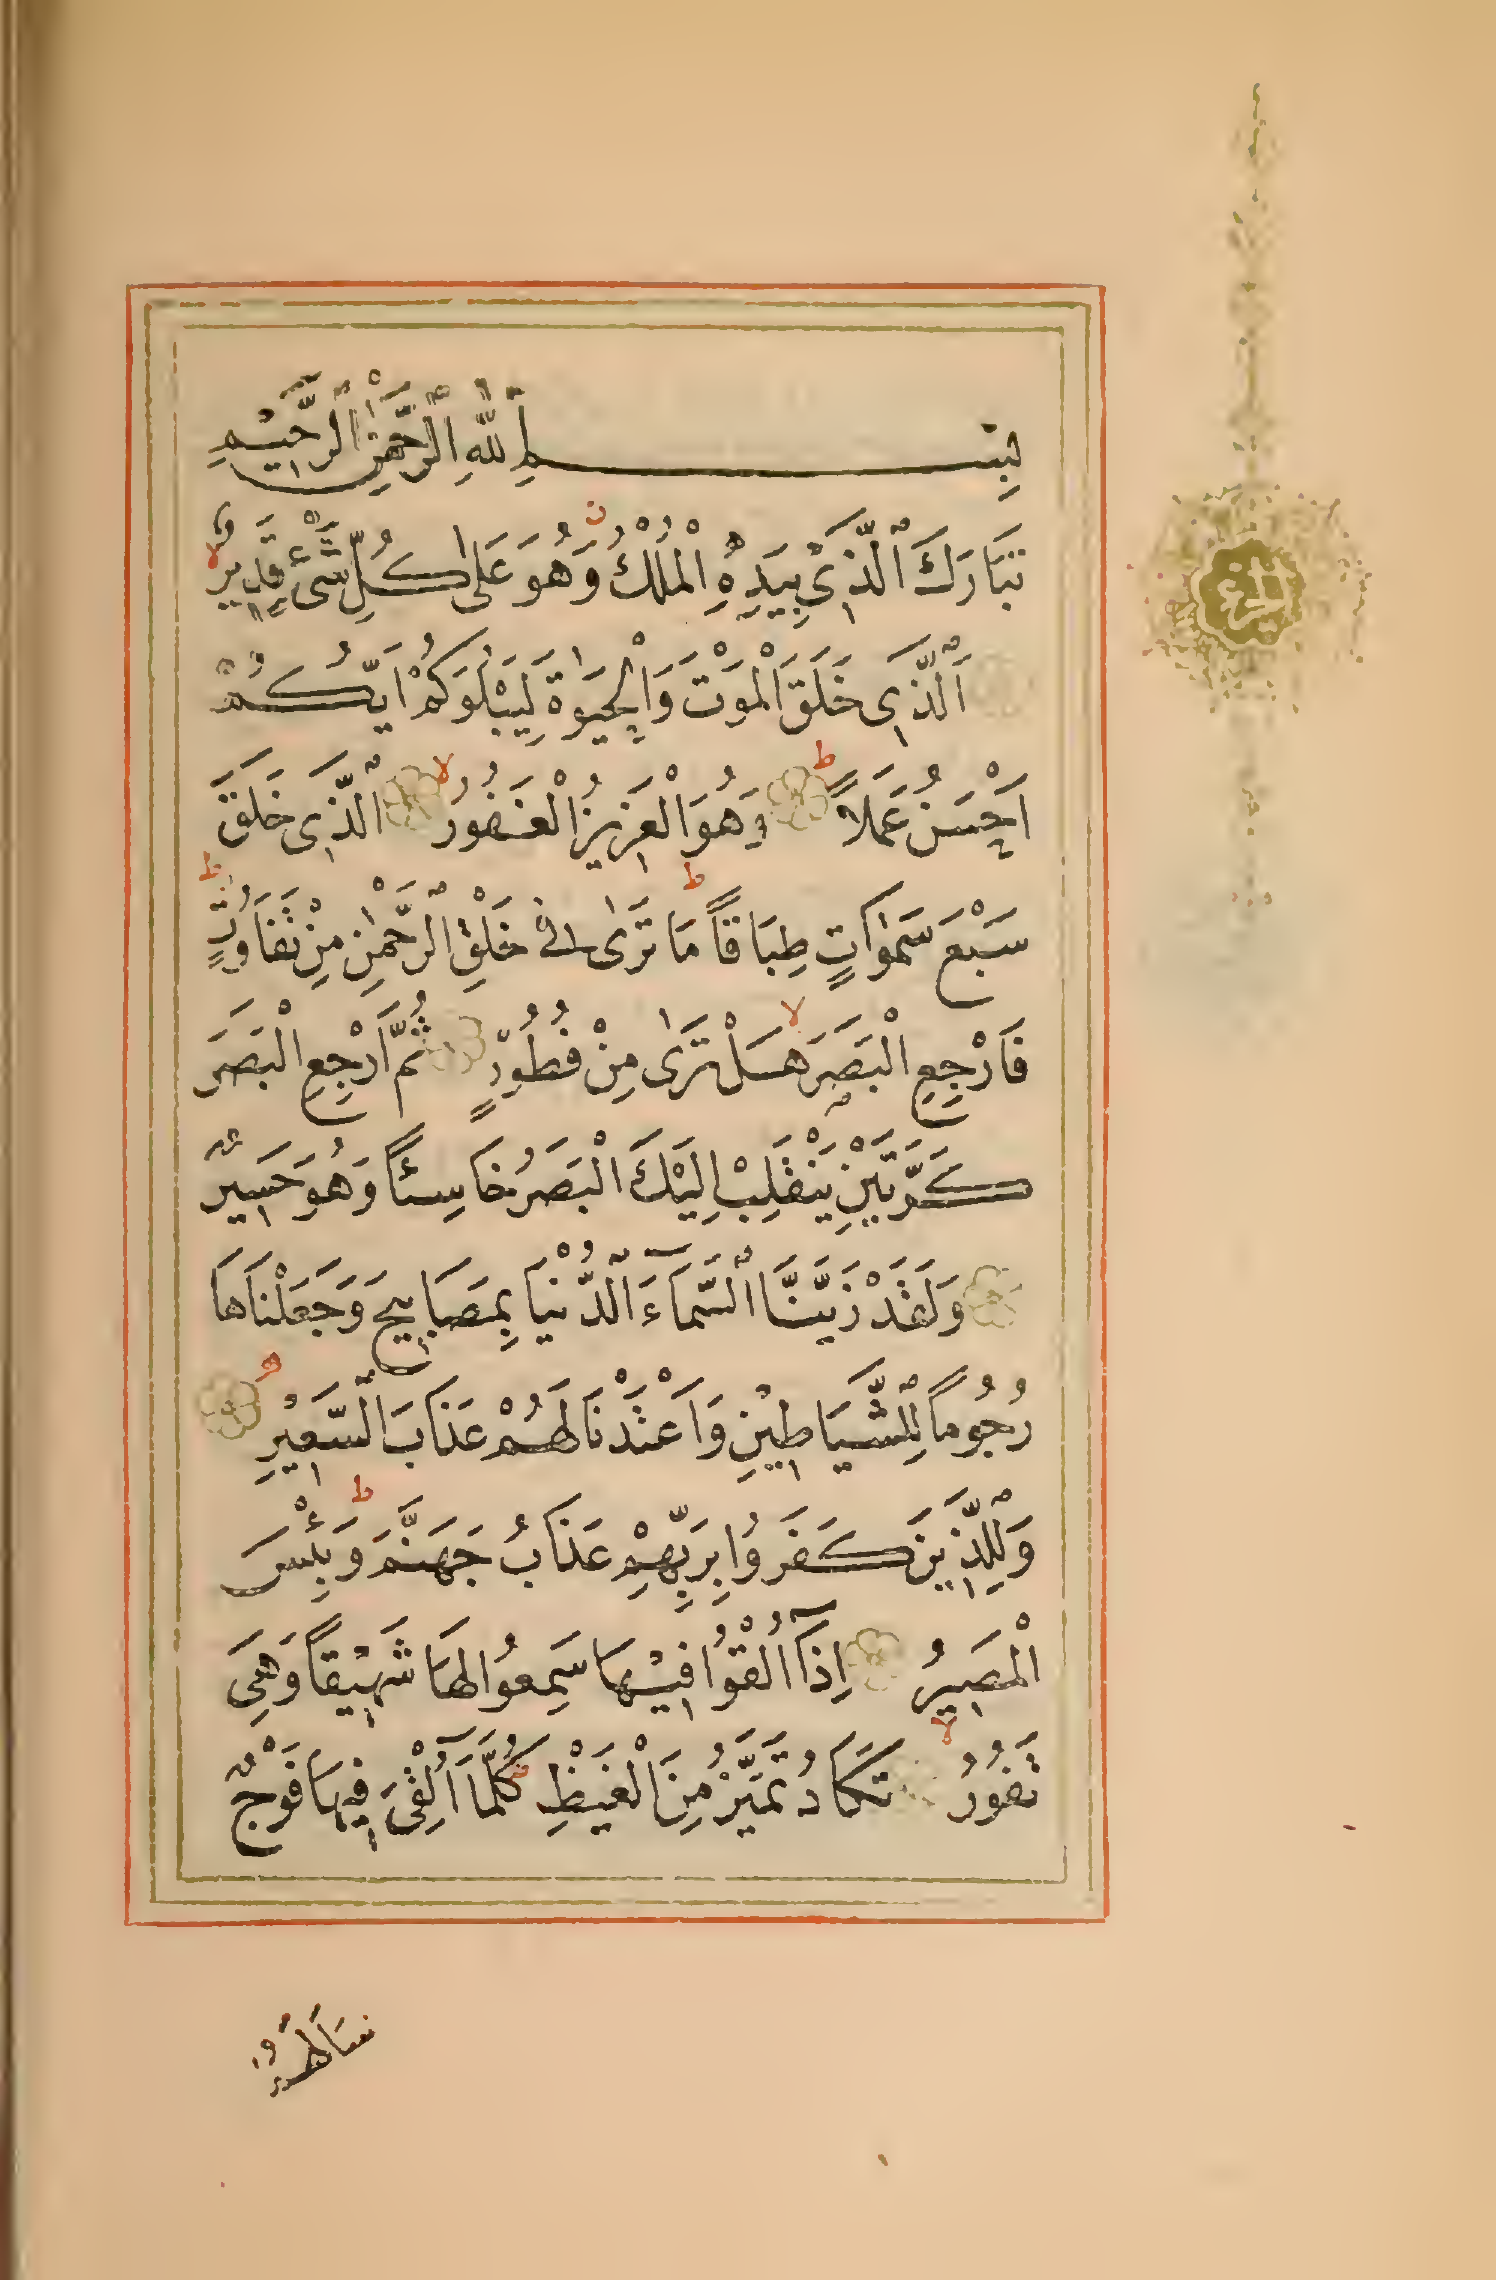 بِسْمِ اللّٰهِ الرَّحْمٰنِ الرَّحِيْمِ
تَبَارَكَ الَّذِي بِيَدِهِ الْمُلْكُ وَهُوَ عَلٰى كُلِّ شَيْءٍ قَدِيرٌ لا
اَلَّذِي خَلَقَ الْمَوْتَ وَالْحَيٰوةَ لِيَبْلُوَكُمْ اَيُّكُمْ
اَحْسَنُ عَمَلاً ط وَهُوَ الْعَزِيزُ الْغَفُورُ لا الَّذِي خَلَقَ
سَبْعَ سَمٰوَاتٍ طِبَاقاً ط مَا تَرٰى فِي خَلْقِ الرَّحْمٰنِ مِنْ تَفَاوُتٍ ط
فَارْجِعِ الْبَصَرَ لا هَلْ تَرٰى مِنْ فُطُوْرٍ ثُمَّ ارْجِعِ الْبَصَرَ
كَرَّتَيْنِ يَنْقَلِبْ اِلَيْكَ الْبَصَرُ خَاسِئاً وَهُوَ حَسِيرٌ
وَلَقَدْ زَيَّنَّا السَّمَآءَ الدُّنْيَا بِمَصَابِيحَ وَجَعَلْنَاهَا
رُجُوماً لِلشَّيَاطِيْنِ وَاَعْتَدْنَا لَهُمْ عَذَابَ السَّعِيْرِ
وَلِلَّذِينَ كَفَرُوا بِرَبِّهِمْ عَذَابُ جَهَنَّمَ ط وَبِئْسَ
الْمَصِيرُ اِذَآ اُلْقُوْا فِيْهَا سَمِعُوا لَهَا شَهِيْقاً وَهِيَ
تَفُوْرُ لا تَكَادُ تَمَيَّزُ مِنَ الْغَيْظِ كُلَّمَآ اُلْقِيَ فِيهَا فَوْجٌ
سَاَلَهُمْ